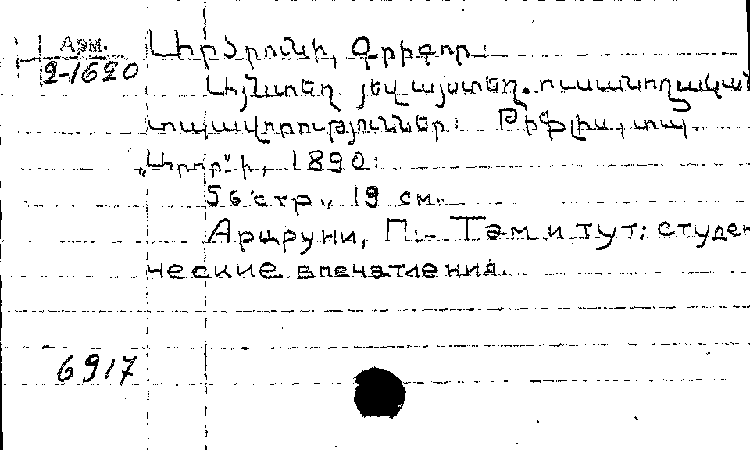 Арм.
2-1620
Արծրունի, Գրիգոր։
Այնտեղ յեվ այստեղ. ուսանողական
տպավորություններ։ Թիֆլիս, տպ.
„Արոր"ի, 1890։
56 стр., 19 см.
Арцруни, Г. - Там и тут: студен
ческие впечатления.
6917